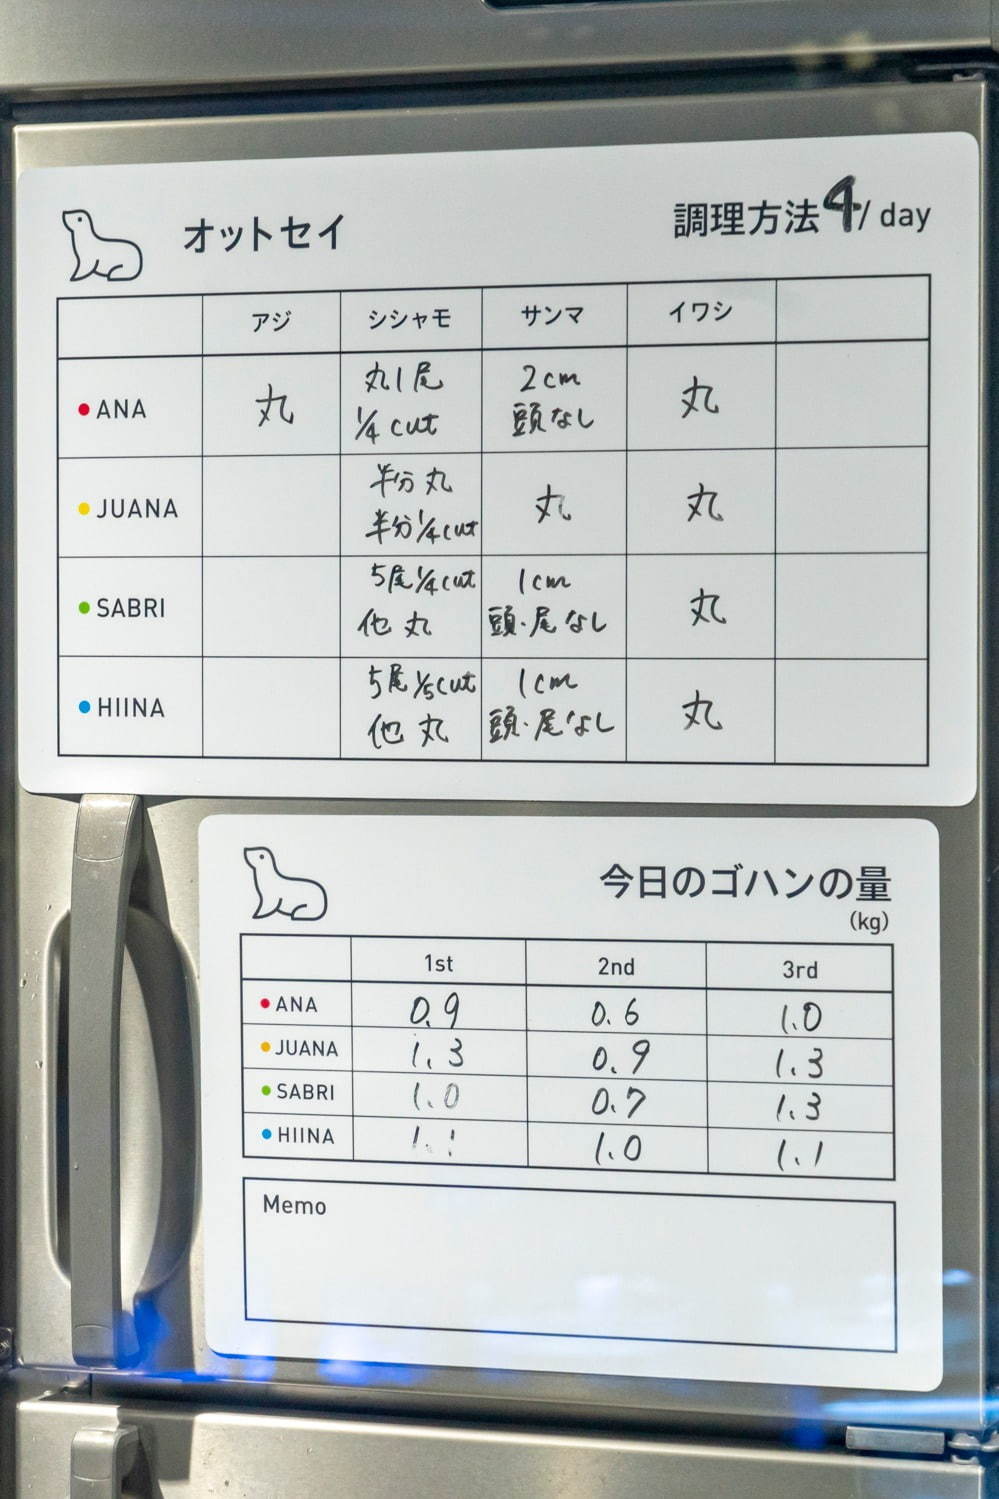 オットセイ
調理方法 4/day
アジ シシャモ サンマ イワシ
ANA 丸 丸1尾 2cm 丸
1/4 cut 頭なし
JUANA 半分 丸 丸 丸
半分 1/4 cut
SABRI 5尾 1/4 cut 1cm 丸
他 丸 頭・尾なし
HIINA 5尾 1/5 cut 1cm 丸
他 丸 頭・尾なし
今日のゴハンの量
(kg)
1st 2nd 3rd
ANA 0.9 0.6 1.0
JUANA 1.3 0.9 1.3
SABRI 1.0 0.7 1.3
HIINA 1.1 1.0 1.1
Memo